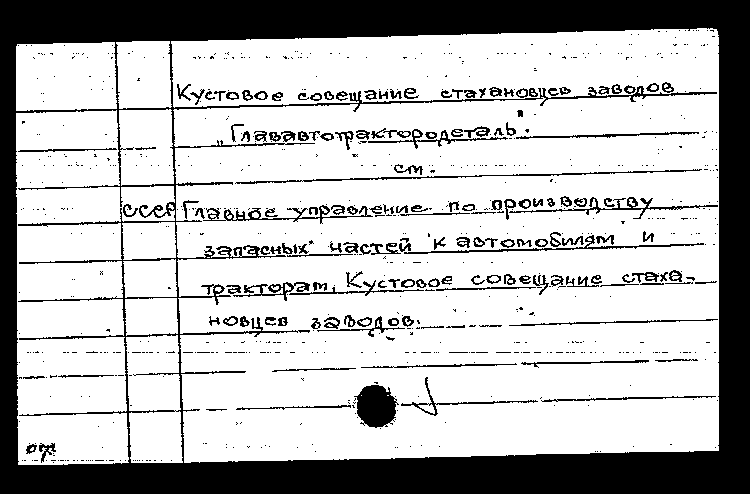 Кустовое совещание стахановцев заводов
„Глававтотрактородеталь".
см.
СССР Главное управление по производству
запасных частей к автомобилям и
тракторам. Кустовое совещание стаха-
новцев заводов.